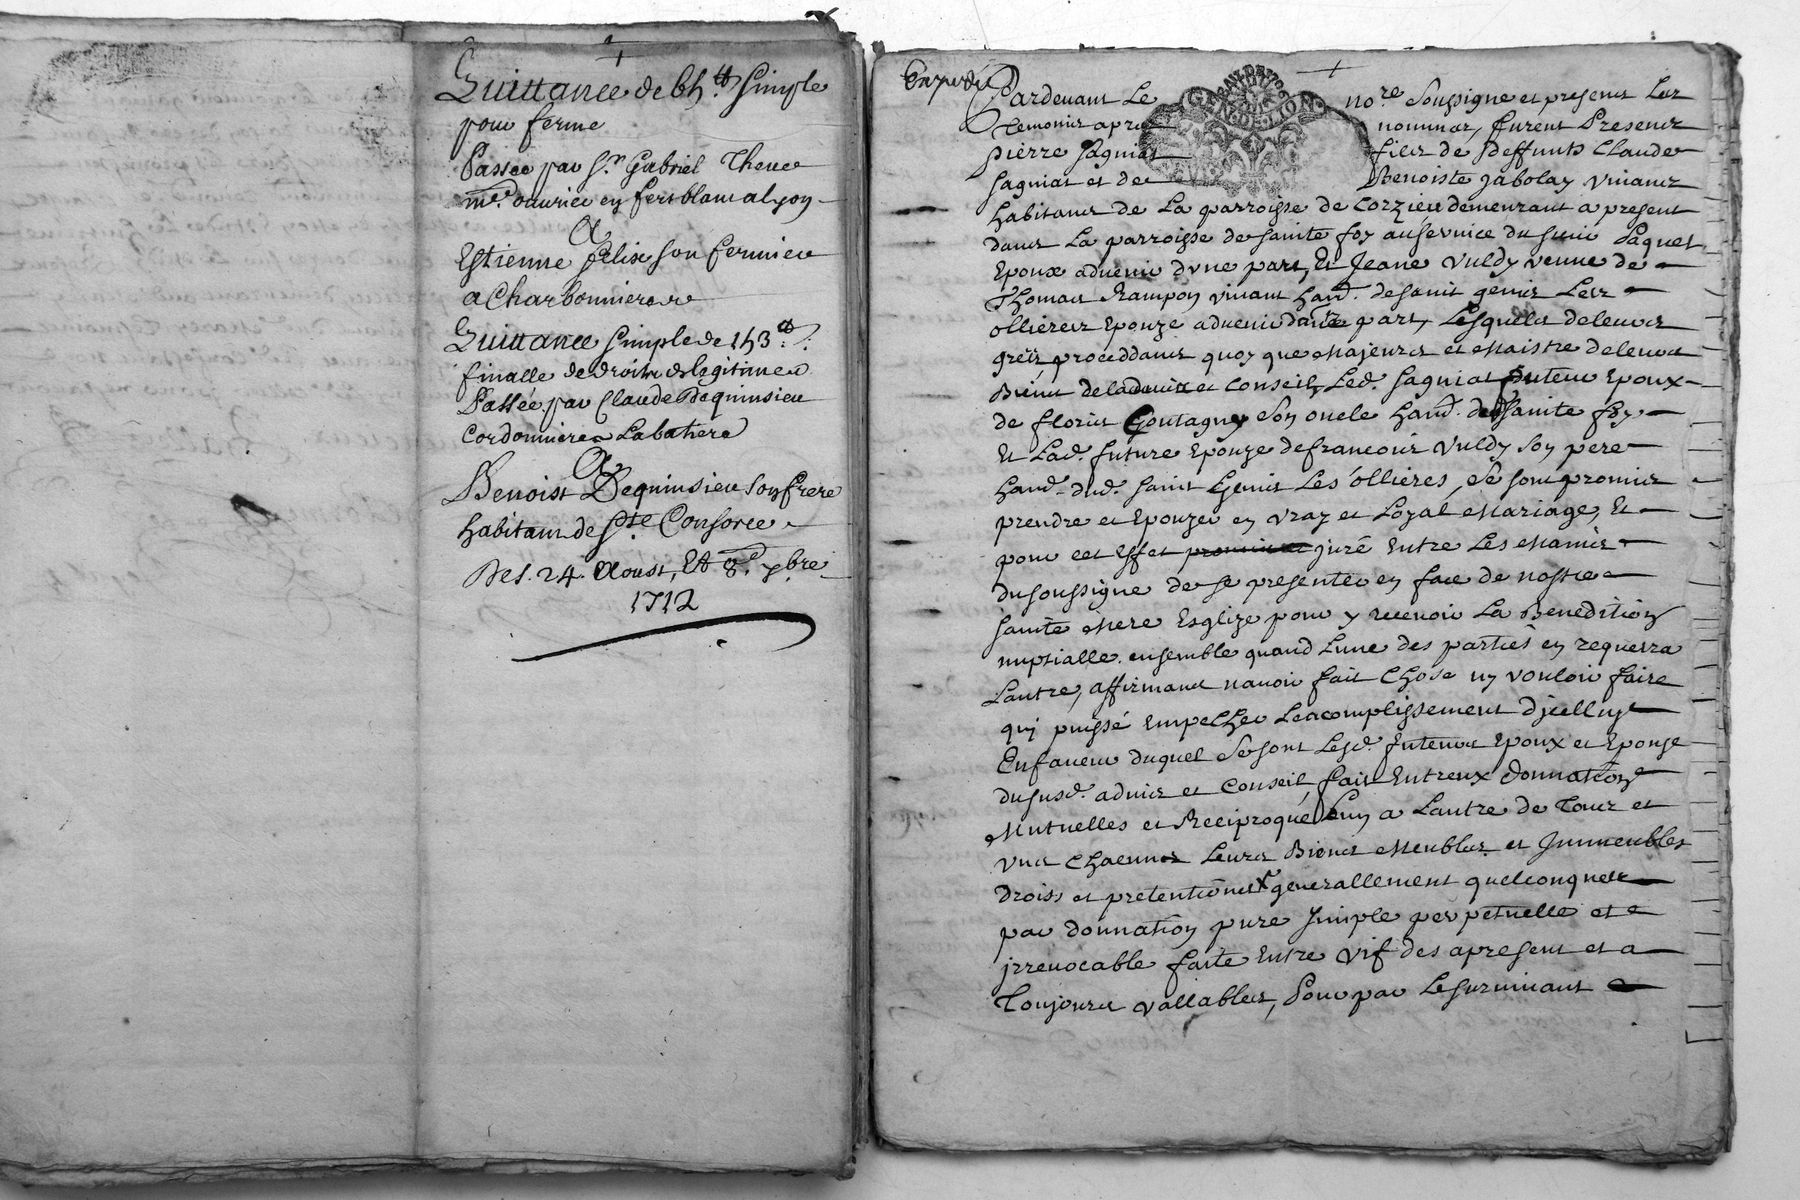 Quittance de 65 ₶ simple
pour ferme
Passée par Sr. Gabriel Theue
me. ouurier en fert blanc a lyon
A
Estienne felix son fermier
a Charbonnieres
Quittance simple de 153 ₶.
finalle de droits de legitimes
Passée par Claude Dequinsieu
Cordonnier a Labatiere
A
Benoist Dequinsieu son frere
habitant de Ste. Consorce
Des. 24. Aoust, Et 8e. 7bre
1712
Expedié
Pardeuant Le nore Soussigne et presens Les
Temoins apres nommes, furent Presens
pierre Sagnias fils de deffunts Claude
Sagnias et de Benoiste Jabolay viuans
habitans de La parroisse de Corzieu demeurant a present
dans La parroisse de Sainte foy au seruice du sieur Paquet
Epoux aduenir dvne part, Et Jeane Vuldy veuue de
Thomas Rampon viuant hand. de saint genis Les
ollieres Epouze aduenir dautre part, Lesquels de leurs
grés proceddans quoy que Majeurs et Maistre de leurs
Biens de laduis et Conseil, Led. Sagnias futeur Epoux
de floris Goutagny son oncle hand. de Sainte foy
Et Lad. future Epouze de francois Vuldy son pere
hand. dud. Saint Genis Les ollieres, se sont promis
prendre et Epouzer en vray et Loyal Mariage, Et
pour cet Effet juré Entre Les Mains
du soussigne de se presenter en face de nostre
sainte Mere Esglize pour y receuoir La Benedition
nuptialle ensemble quand Lune des parties en requerra
Lautre, affirmans nauoir fait Chose ny vouloir faire
qui puisse Empecher Lacomplissement djcelluy
En faueur duquel se sont Lesd. futeurs Epoux et Epouse
du susd. aduis et Conseil, fait Entreux donnation
Mutuelles et Reciproque Luny a Lautre de Tous et
vns Chacuns Leurs Biens Meubles et Jmmeubles
droits et pretentions x generallement quelconques
par donnation pure simple perpetuelle et
jrreuocable faite Entre vif des apresent et a
Toujours vallables, Pour par Le suruiuant